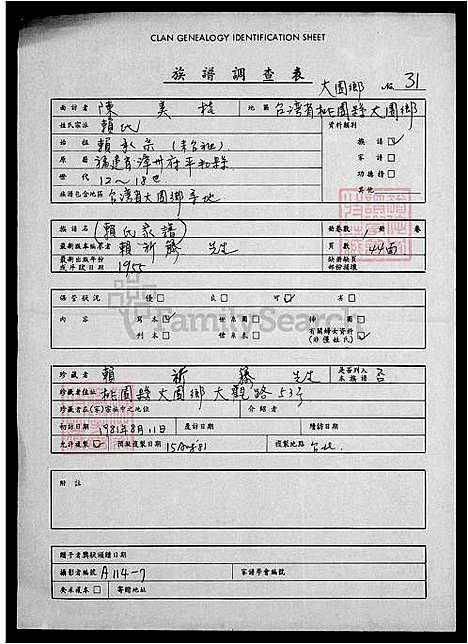 CLAN GENEALOGY IDENTIFICATION SHEET
族譜調查表
大園鄉 31
面訪者 陳美桂 地區 台灣省桃園縣大園鄉
姓氏宗派 賴氏 資料類別
始祖 族譜
原籍 福建省漳州府平和縣 家譜
世代 12~18世 功德榜
族譜包含地區 台灣省大園鄉等地 其他
族譜名 (賴氏家譜) 冊卷數 1 冊 卷
最新版本編纂者 賴新 先生 頁數 44面
最新出版年份 缺冊缺頁
或斥設日期 1955 部份損壞
保管狀況 優 良 可 劣
內容 寫本 世系圖 神圖
刊本 世系表 有關婦女資料
(非僅姓氏)
珍藏者 賴新 先生 是否列入本族譜 否
珍藏者住址 桃園縣大園鄉大觀路53号
珍藏者在(家)宗族中之地位 介紹者
初訪日期 1981年8月11日 度訪日期 續訪日期
允許複製 預擬複製日期 15 複製地點 台北
附註
贈予者獎狀頒贈日期
攝影者編號 A114-7 家譜學會編號
交來複本 寄贈地址
FamilySearch